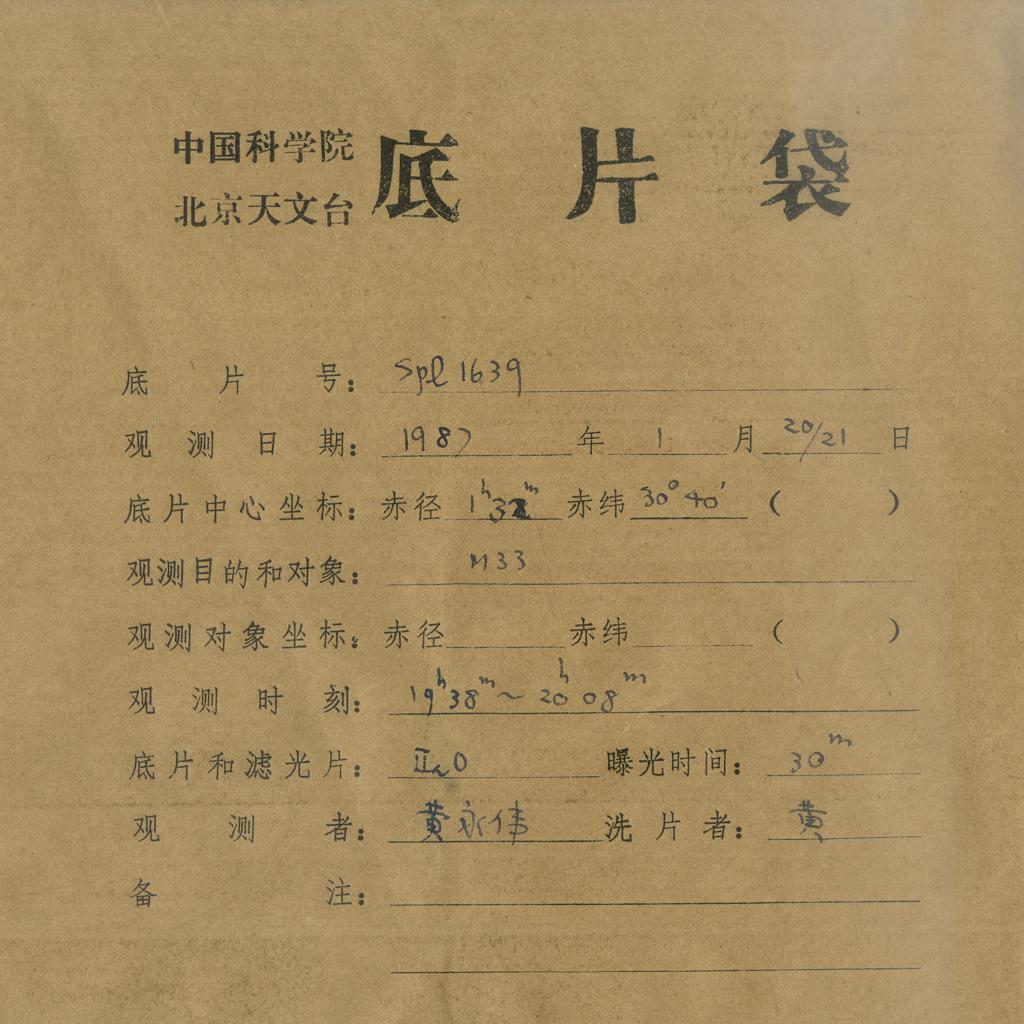 中国科学院
北京天文台
底片袋
底片号：Spl 1639
观测日期：1987年1月20/21日
底片中心坐标：赤径 1ʰ32ᵐ 赤纬 30°40′（ ）
观测目的和对象：M33
观测对象坐标：赤径 赤纬 （ ）
观测时刻：19ʰ38ᵐ～20ʰ08ᵐ
底片和滤光片：IIaO 曝光时间：30ᵐ
观测者：黄永伟 洗片者：黄
备注：